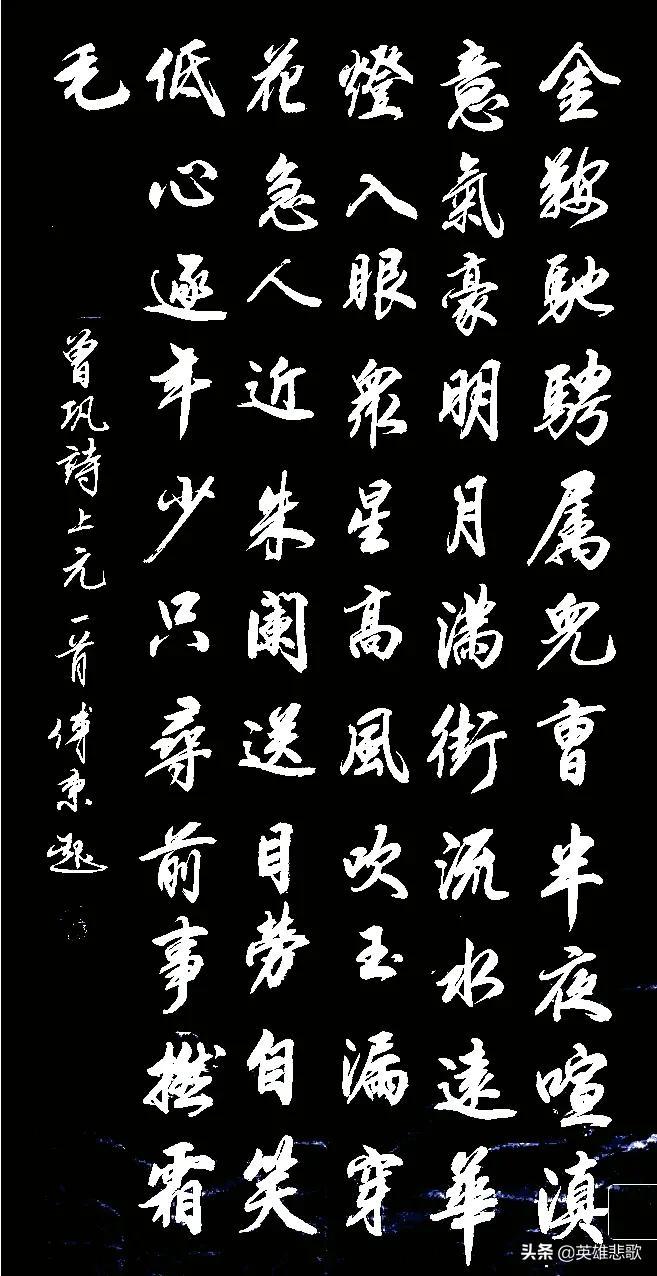 金鞍馳騁属兒曹半夜喧滇
意氣豪明月滿街流水遠華
燈入眼衆星高風吹玉漏穿
花急人近朱闌送目勞自笑
低心逐年少只尋前事撚霜
毛
曾巩詩上元一首傅題
头条 @英雄悲歌